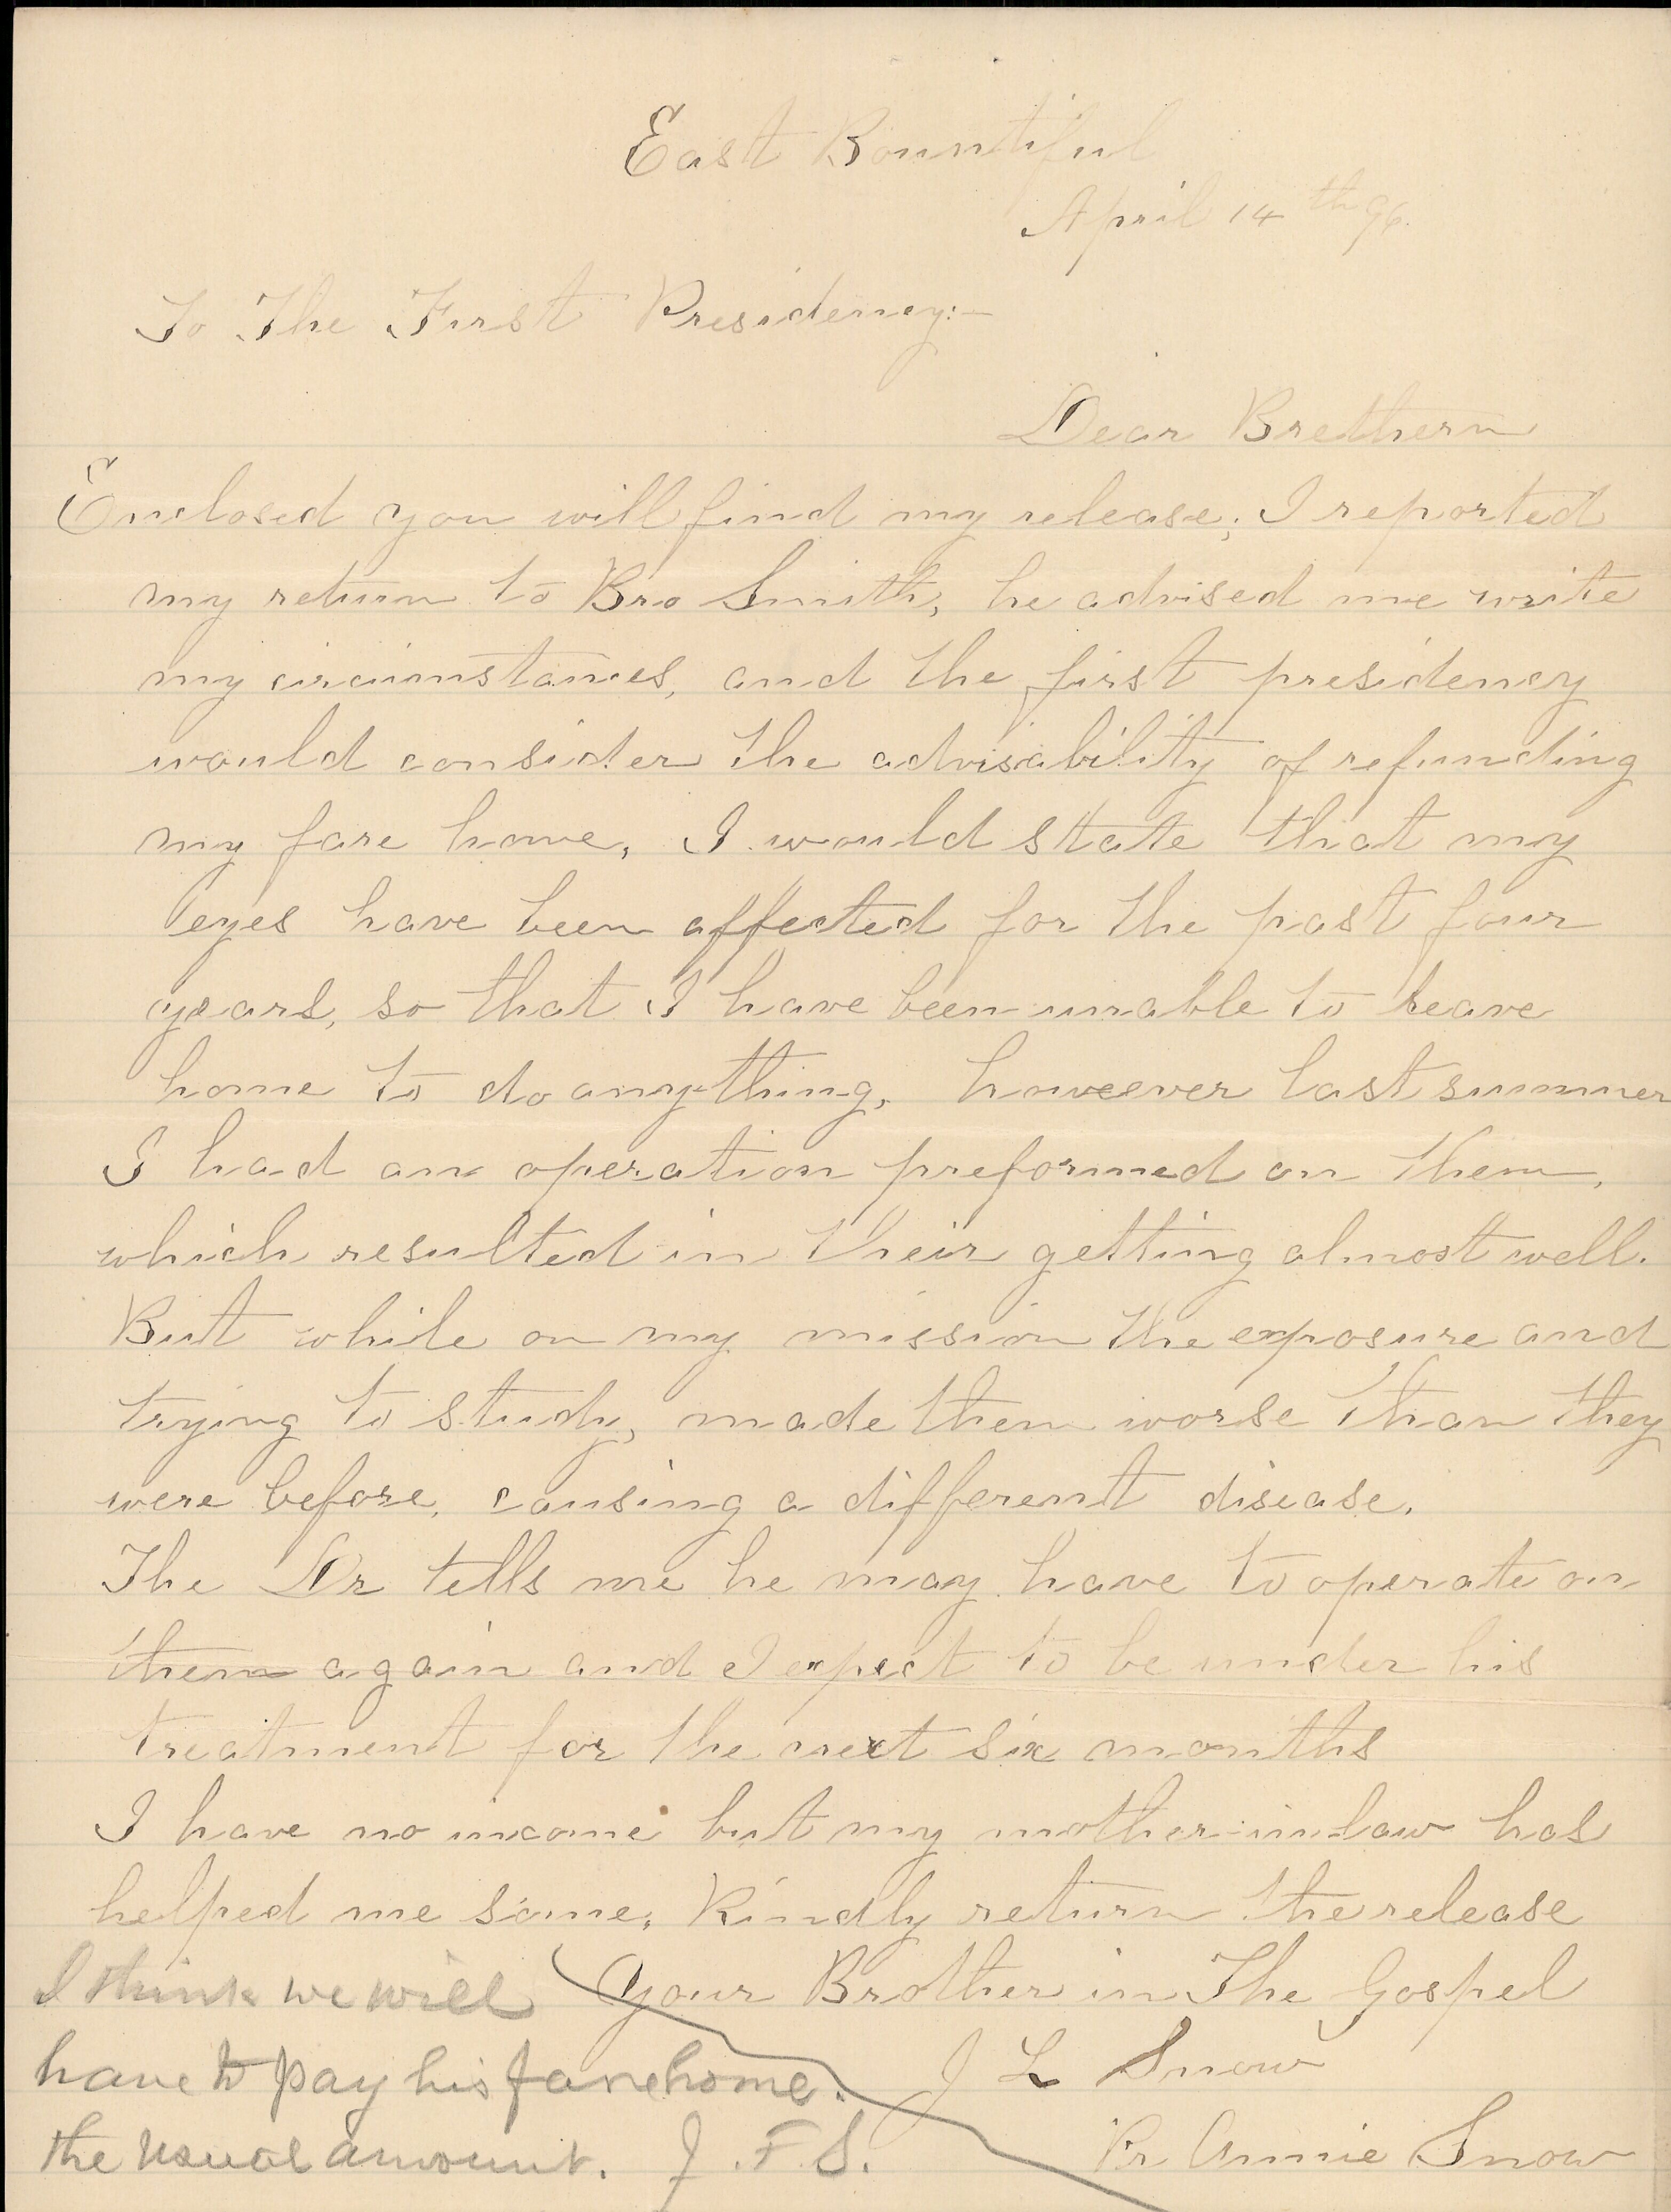 East Bountiful
April 14th 96.
To The First Presidency:-
Dear Brethern
Enclosed you will find my release; I reported
my return to Bro Smith, he advised me write
my circumstances, and the first presidency
would consider the advisability of refunding
my fare home, I would state that my
eyes have been affected for the past four
years, so that I have been unable to leave
home to do anything, howeever last summer
I had an operation preformed on them,
which resulted in their getting almost well.
But while on my mission the exposure and
trying to study, made them worse than they
were before, causing a different disease.
The Dr tells me he may have to operate on
them again and I expect to be under his
treatment for the next six months
I have no income but my mother-in-law has
helped me some, Kindly return the release
Your Brother in The Gospel
J L Snow
Pr Annie Snow
I think we will
have to pay his fare home.
the usual amount. J. F. S.